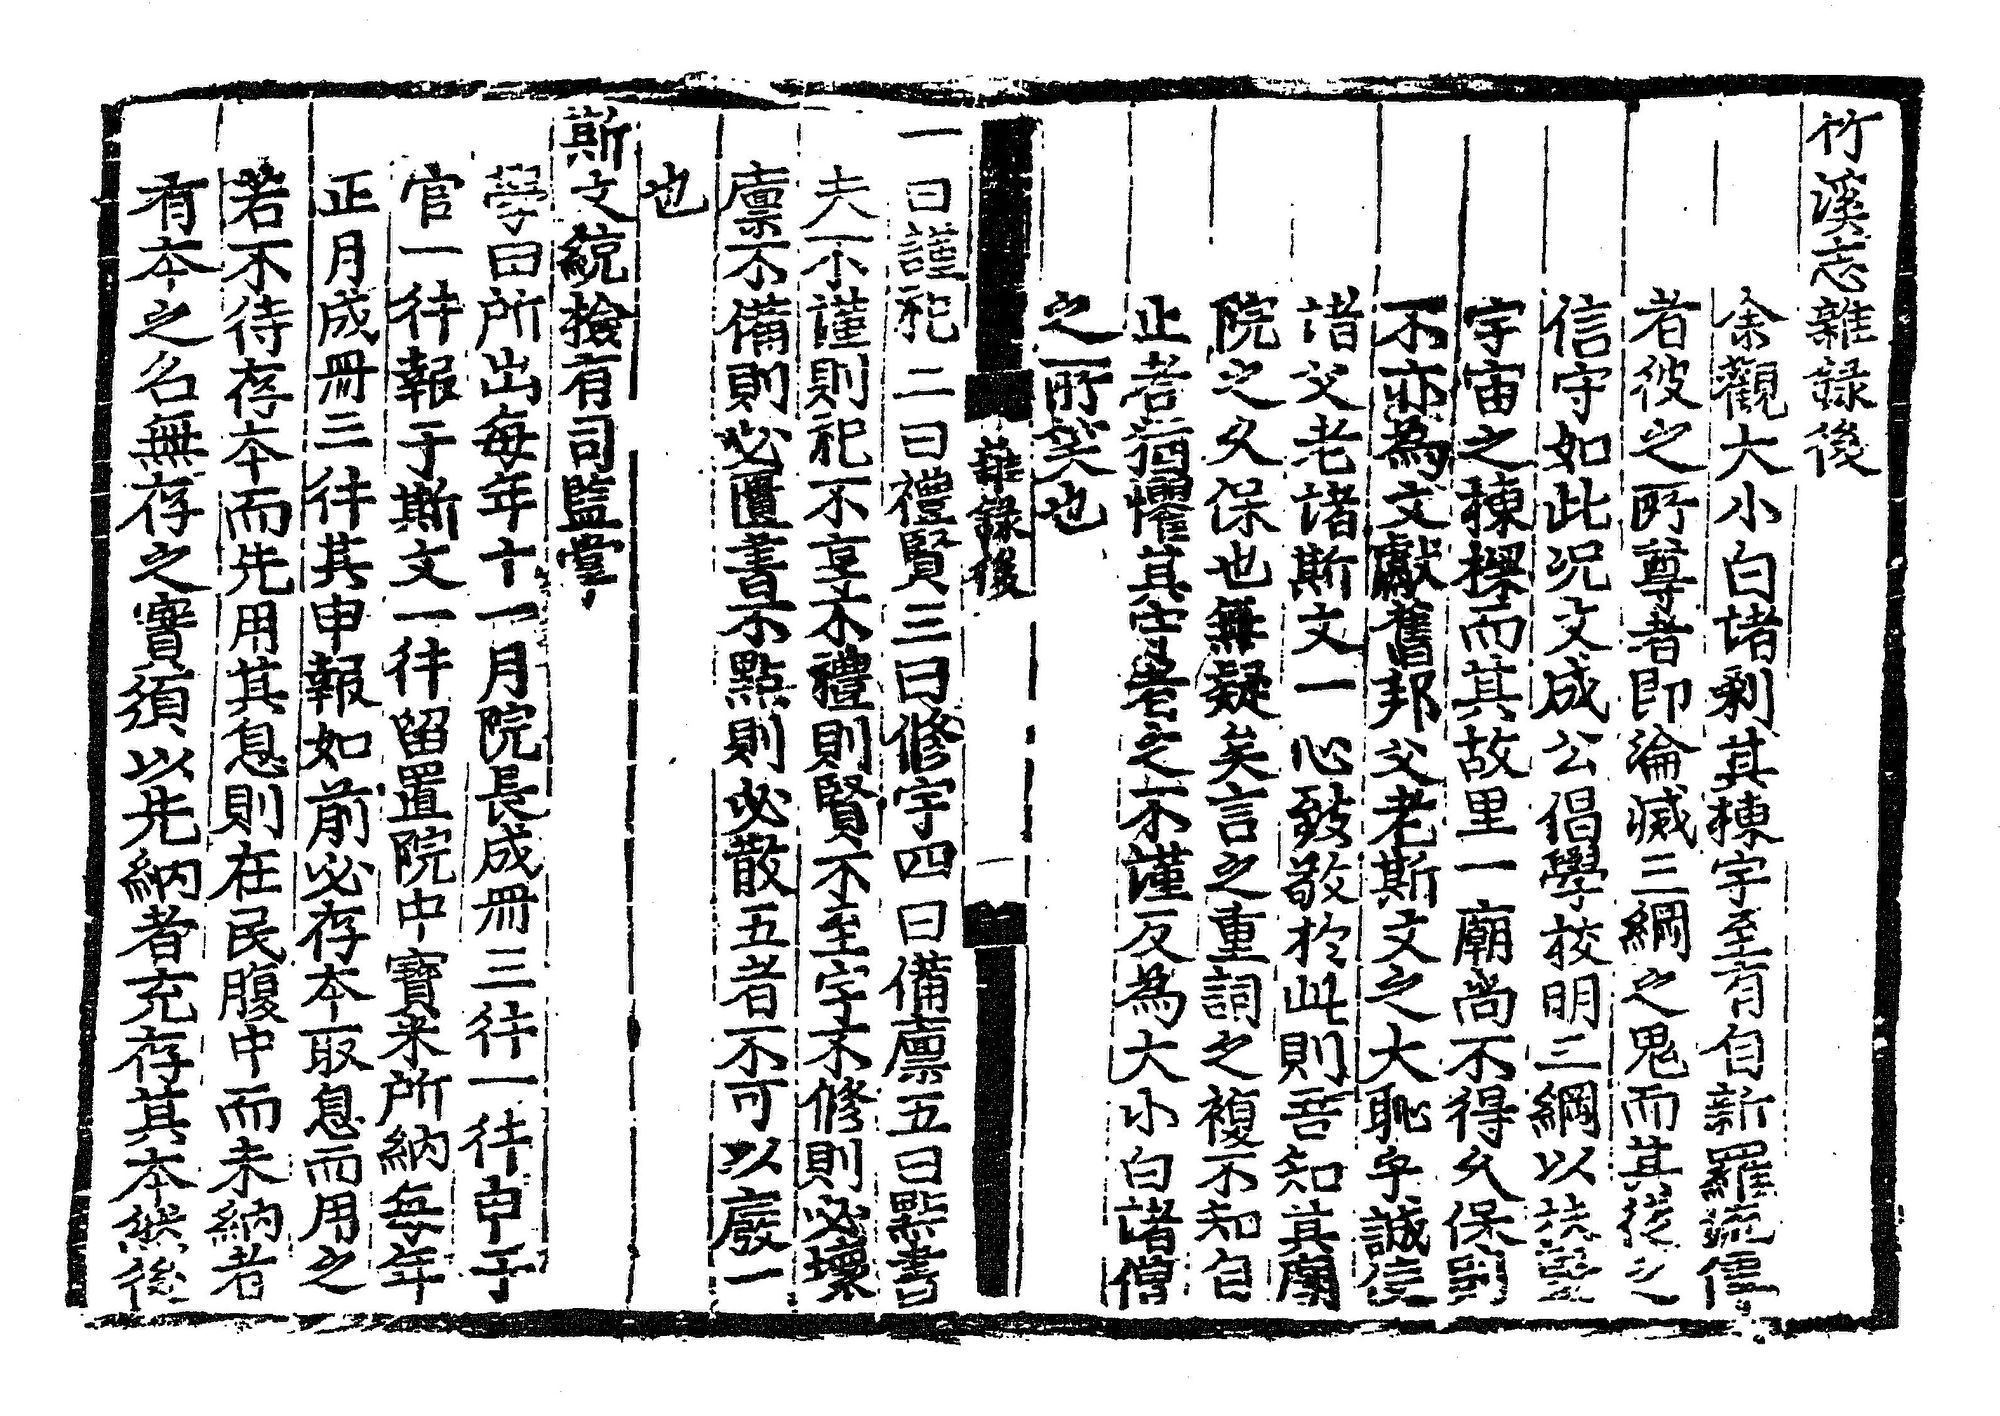 竹溪志雜錄後
余觀大小白諸刹其棟宇至有自新羅流傳
者彼之所尊者即淪滅三綱之鬼而其徒之
信守如此況文成公倡學校明三綱以扶竪
宇宙之棟樑而其故里一廟尚不得久保則
不亦為文獻舊邦父老斯文之大恥乎誠使
諸父老諸斯文一心致敬於此則吾知其廟
院之久保也無疑矣言之重詞之複不知自
止者猶懼其守之不謹反為大小白諸僧
之所笑也
雜錄後
一
一曰謹祀二曰禮賢三曰修宇四曰備廩五曰點書
夫不謹則祀不享不禮則賢不至宇不修則必壞
廩不備則必匱書不點則必散五者不可以廢一
也
斯文統檢有司監掌
學田所出每年十一月院長成冊三件一件申于
官一件報于斯文一件留置院中寶米所納每年
正月成冊三件其申報如前必存本取息而用之
若不待存本而先用其息則在民腹中而未納者
有本之名無存之實須以先納者充存其本然後